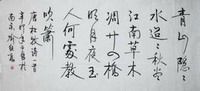 青山隐隐
水迢迢秋尽
江南草木
凋廿四桥
明月夜玉
人何处教
吹箫
唐杜牧诗一首